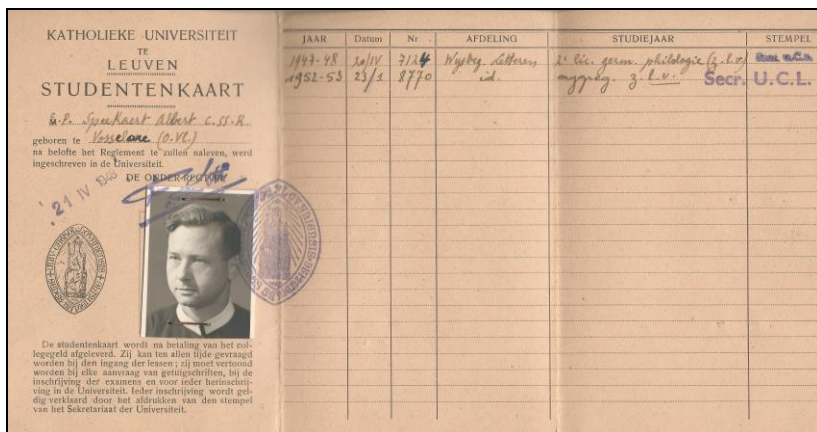 KATHOLIEKE UNIVERSITEIT
TE
LEUVEN
STUDENTENKAART
E.P. Speekaert Albert C.SS.R
geboren te Vosselare (O.Vl.)
na belofte het Reglement te zullen naleven, werd
ingeschreven in de Universiteit.
DE ONDER-RECTOR
21 IV 1948
De studentenkaart wordt na betaling van het col-
legegeld afgeleverd. Zij kan ten allen tijde gevraagd
worden bij den ingang der lessen ; zij moet vertoond
worden bij elke aanvraag van getuigschriften, bij de
inschrijving der examens en voor ieder herinschrij-
ving in de Universiteit. Ieder inschrijving wordt gel-
dig verklaard door het afdrukken van den stempel
van het Sekretariaat der Universiteit.
JAAR Datum Nr AFDELING STUDIEJAAR STEMPEL
1947-48 20/IV 7124 Wijsbeg. Letteren 2e lic. germ. philologie (z.l.v.)
1952-53 23/1 8770 id. z.l.v. Secr. U.C.L.